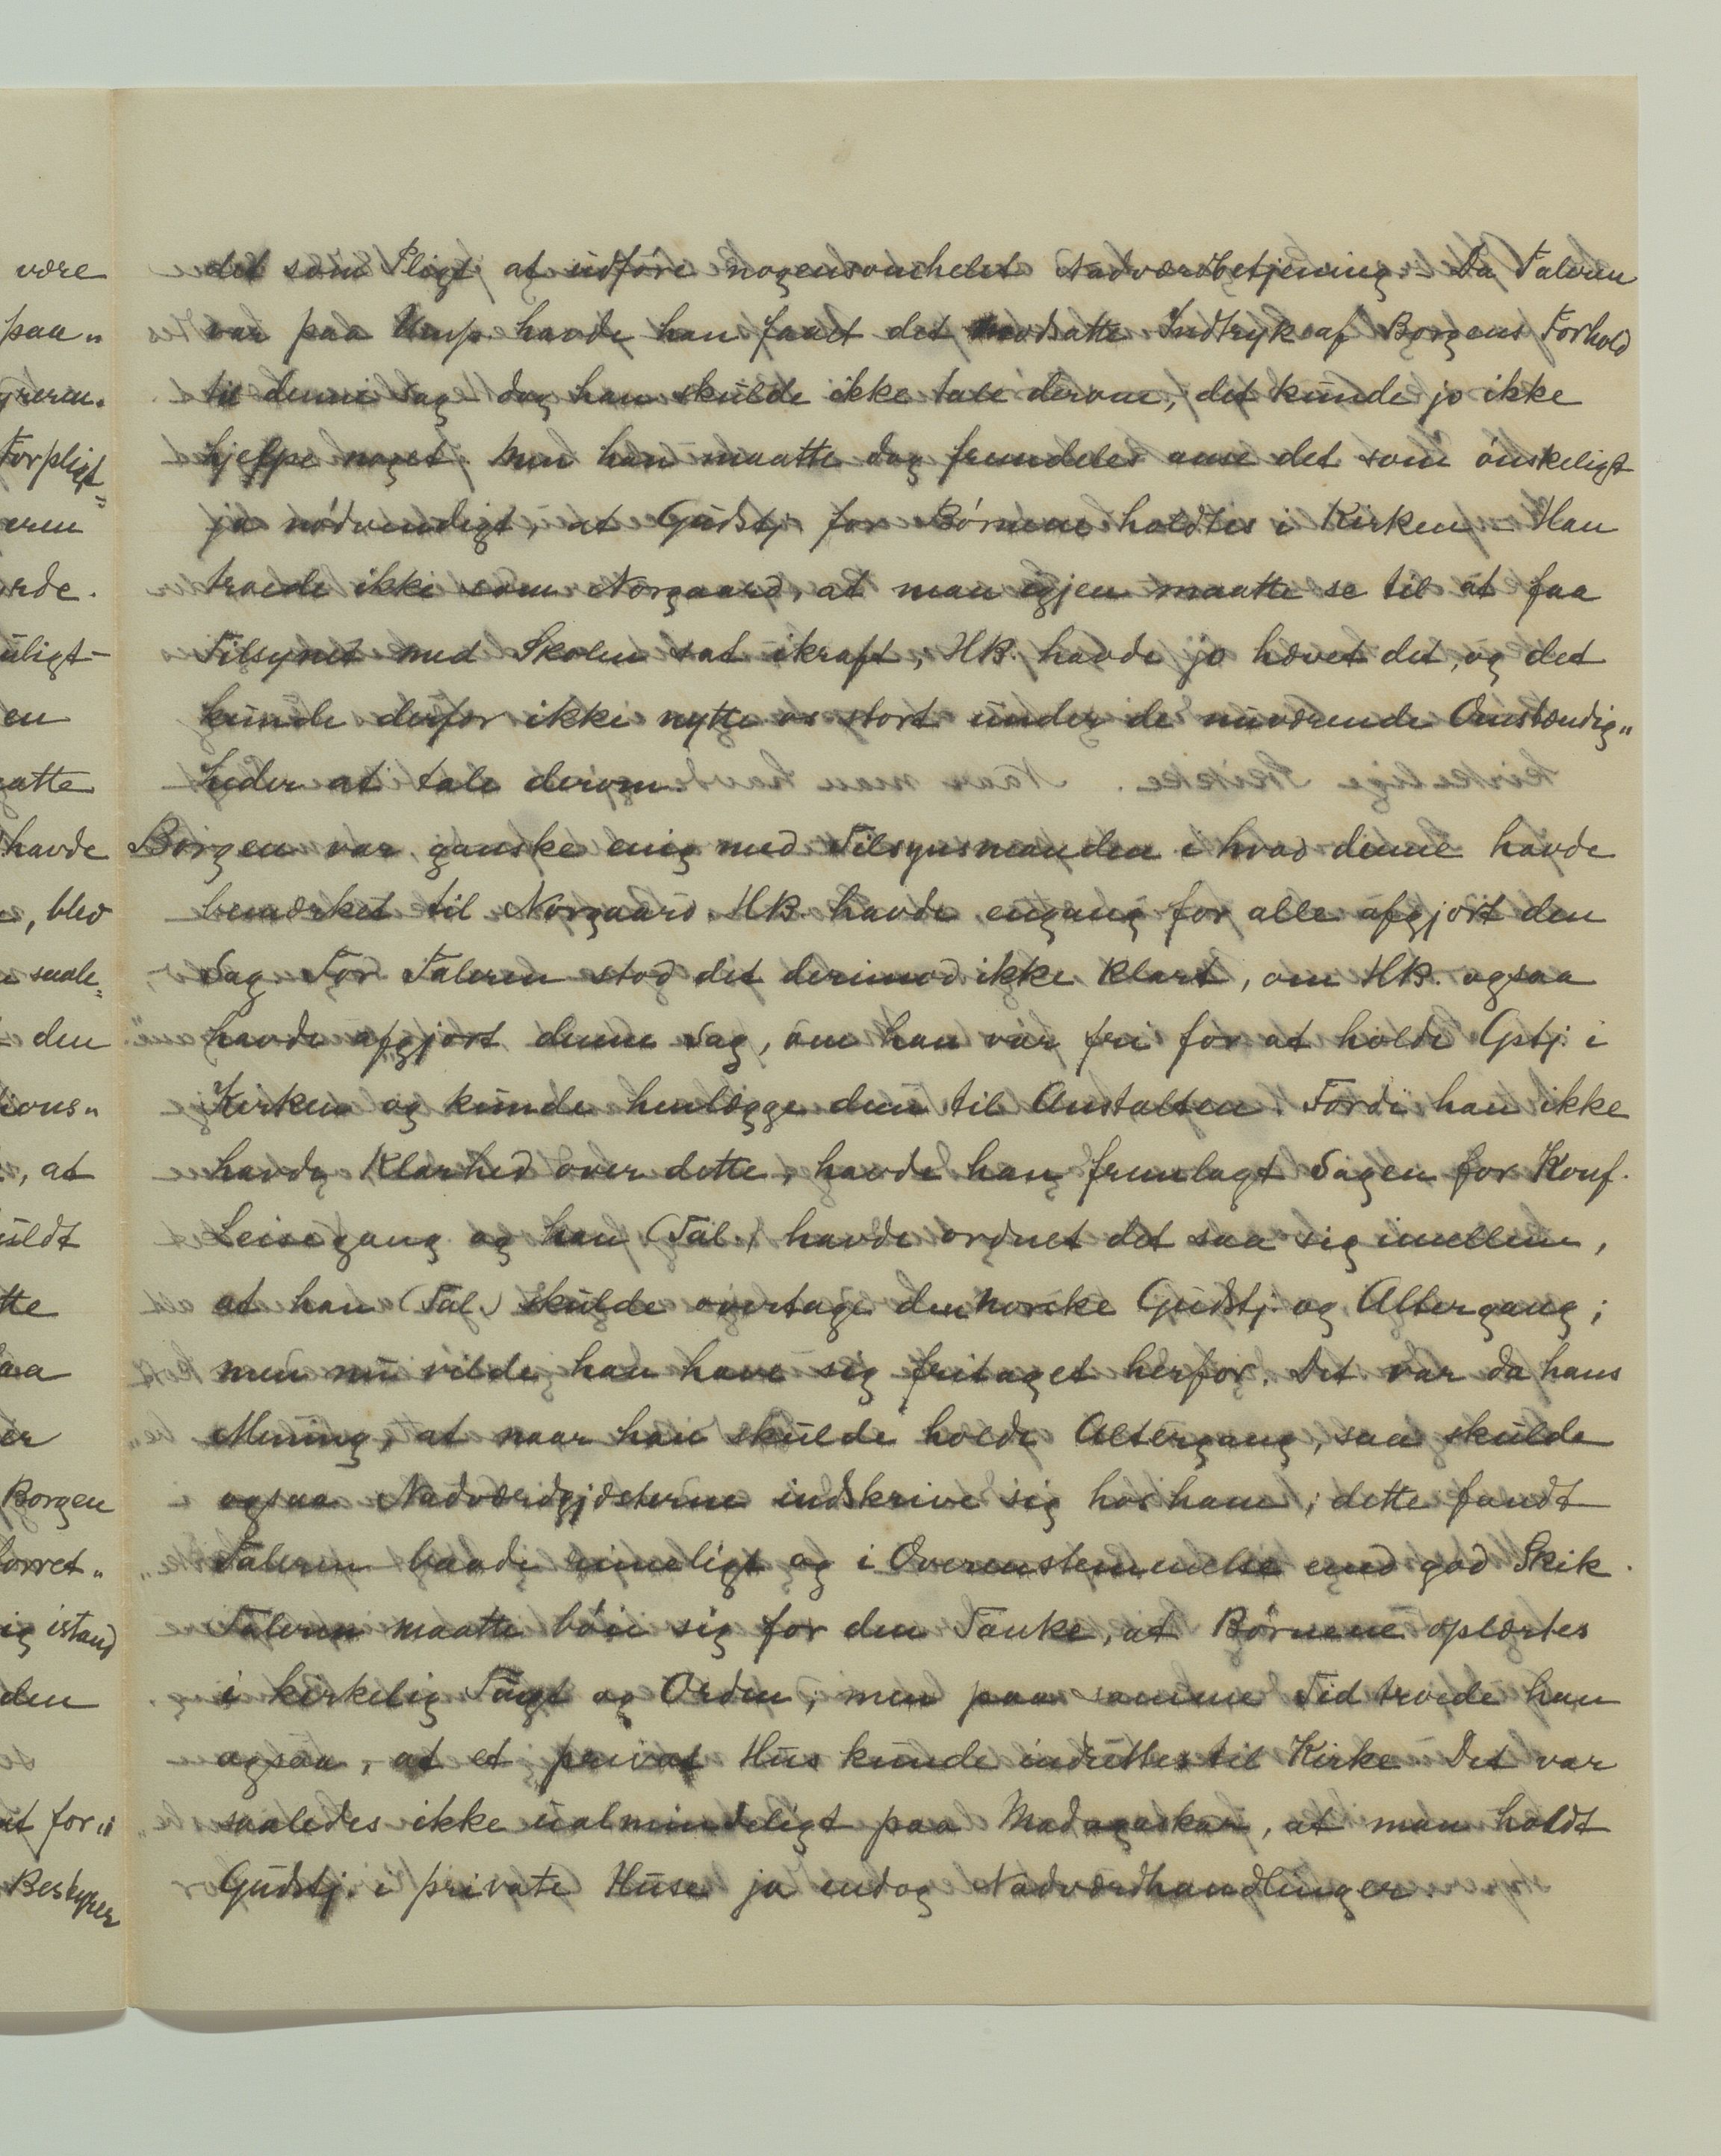 det som Pligt at udføre nogensomhelst Nadværdbetjening. – Da Taleren
var paa Ump. havde han faaet det modsatte Indtryk af Borgens Forhold
til denne Sag dog han skulde ikke tale derom, det kunde jo ikke
hjelpe noget. Men han maatte dog fremdeles anse det som ønskeligt
ja nødvendigt, at Gudstj. for Børnene holdtes i Kirken – Han
troede ikke som Norgaard, at man igjen maatte se til at faa
Tilsynet med Skolen sat ikraft, HB. havde jo hævet det, og det
kunde derfor ikke nytte os stort under de nuværende Omstændig„
heder at tale derom.
Borgen var ganske enig med Tilsynsmanden i hvad denne havde
bemærket til Norgaard. HB. havde engang for alle afgjort den
Sag. For Taleren stod det derimod ikke klart, om HB. ogsaa
havde afgjort denne Sag, om han var fri for at holde Gstj. i
Kirken og kunde henlægge den til Anstalten. Fordi han ikke
havde Klarhed over dette, havde han fremlagt Sagen for Konf.
Leisegang og han (Tal.) havde ordnet det saa sig imellem,
at han (Tal.) skulde overtage den norske Gudstj. og Altergang;
men nu vilde han have sig fritaget herfor. Det var da hans
Mening, at naar han skulde holde Altergang, saa skulde
ogsaa Nadværdgjæsterne indskrive sig hos ham; dette fandt
Taleren baade rimeligt og i Overensstemmelse med god Skik.
Taleren maatte bøie sig for den Tanke, at Børnene oplærtes
i kirkelig Tugt og Orden; men paa samme Tid troede han
ogsaa, at et privat Hus kunde indrettes til Kirke. Det var
saaledes ikke ualmindeligt paa Madagaskar, at man holdt
Gudstj. i private Huse ja endog Nadværdhandlinger
være
paa„
Forpligt=
havde
, blev
saale=
den
, at
Borgen
istand
den
for„
Beskyrer